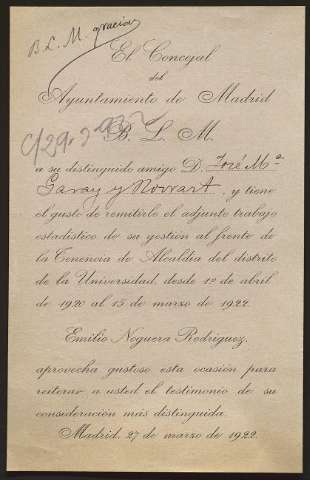 B. L. M. gracias
El Concejal
del
Ayuntamiento de Madrid
B. L. M.
C/29-3-922
a su distinguido amigo D. José Mª
Garay y Rowart, y tiene
el gusto de remitirlo el adjunto trabajo
estadístico de su gestión al frente de
la Tenencia de Alcaldía del distrito
de la Universidad, desde 1º de abril
de 1920 al 15 de marzo de 1922.
Emilio Noguera Rodríguez,
aprovecha gustoso esta ocasión para
reiterar a usted el testimonio de su
consideración más distinguida.
Madrid, 27 de marzo de 1922.